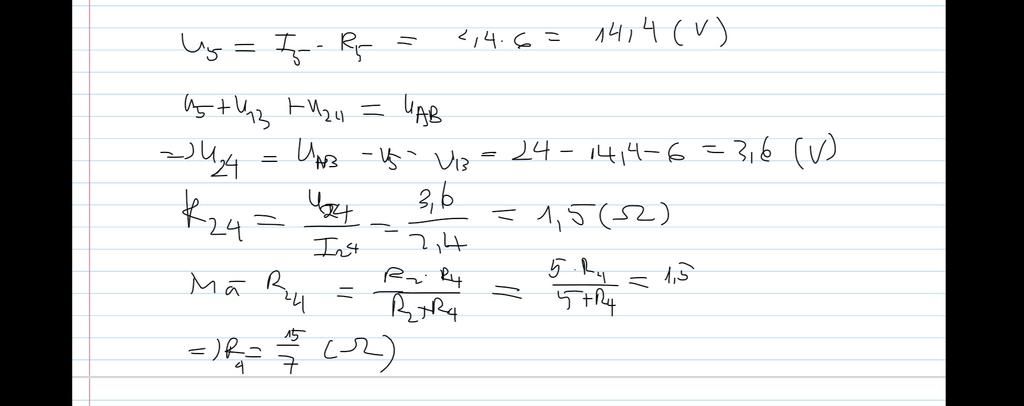 U5 = I5 . R5 = 2,4 . 6 = 14,4 (V)
U5 + U13 + U24 = UAB
=> U24 = UAB - U5 - U13 = 24 - 14,4 - 6 = 3,6 (V)
R24 = U24/I24 = 3,6/2,4 = 1,5 (Ω)
Mà R24 = R2 . R4/R2 + R4 = 5 . R4/5 + R4 = 1,5
=> R4 = 15/7 (Ω)